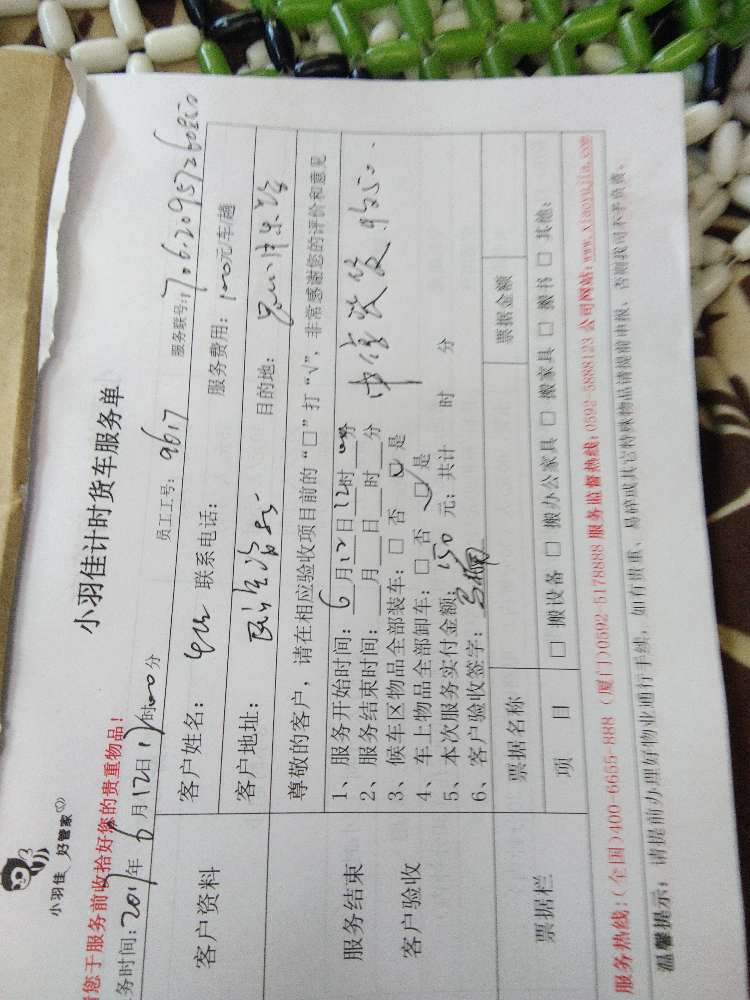 小羽佳 好管家
小羽佳计时货车服务单
请您于服务前收拾好您的贵重物品！
务时间: 2017年6月12日 时 分 员工工号: 9617 服务联号:
客户资料
客户姓名: 联系电话: 服务费用: 元/车/趟
客户地址: 目的地:
尊敬的客户，请在相应验收项目前的“□”打“√”，非常感谢您的评价和意见
服务结束
客户验收
1、服务开始时间: 6月12日12时00分
2、服务结束时间: 月 日 时 分
3、候车区物品全部装车: □ 否 □ 是
4、车上物品全部卸车: □ 否 □ 是
5、本次服务实付金额: 150 元; 共计 时 分
6、客户验收签字:
票据栏
票据名称 票据金额
项 目 □ 搬设备 □ 搬办公家具 □ 搬家具 □ 搬书 □ 其他:
服务热线: (全国)400-6655-888 (厦门)0592-5178888 服务监督热线: 0592-5888123 公司网站: www.xiaoyujia.com
温馨提示: 请提前办理好物业通行手续, 如有贵重、易碎或其它特殊物品请提前申报, 否则我司不予负责。